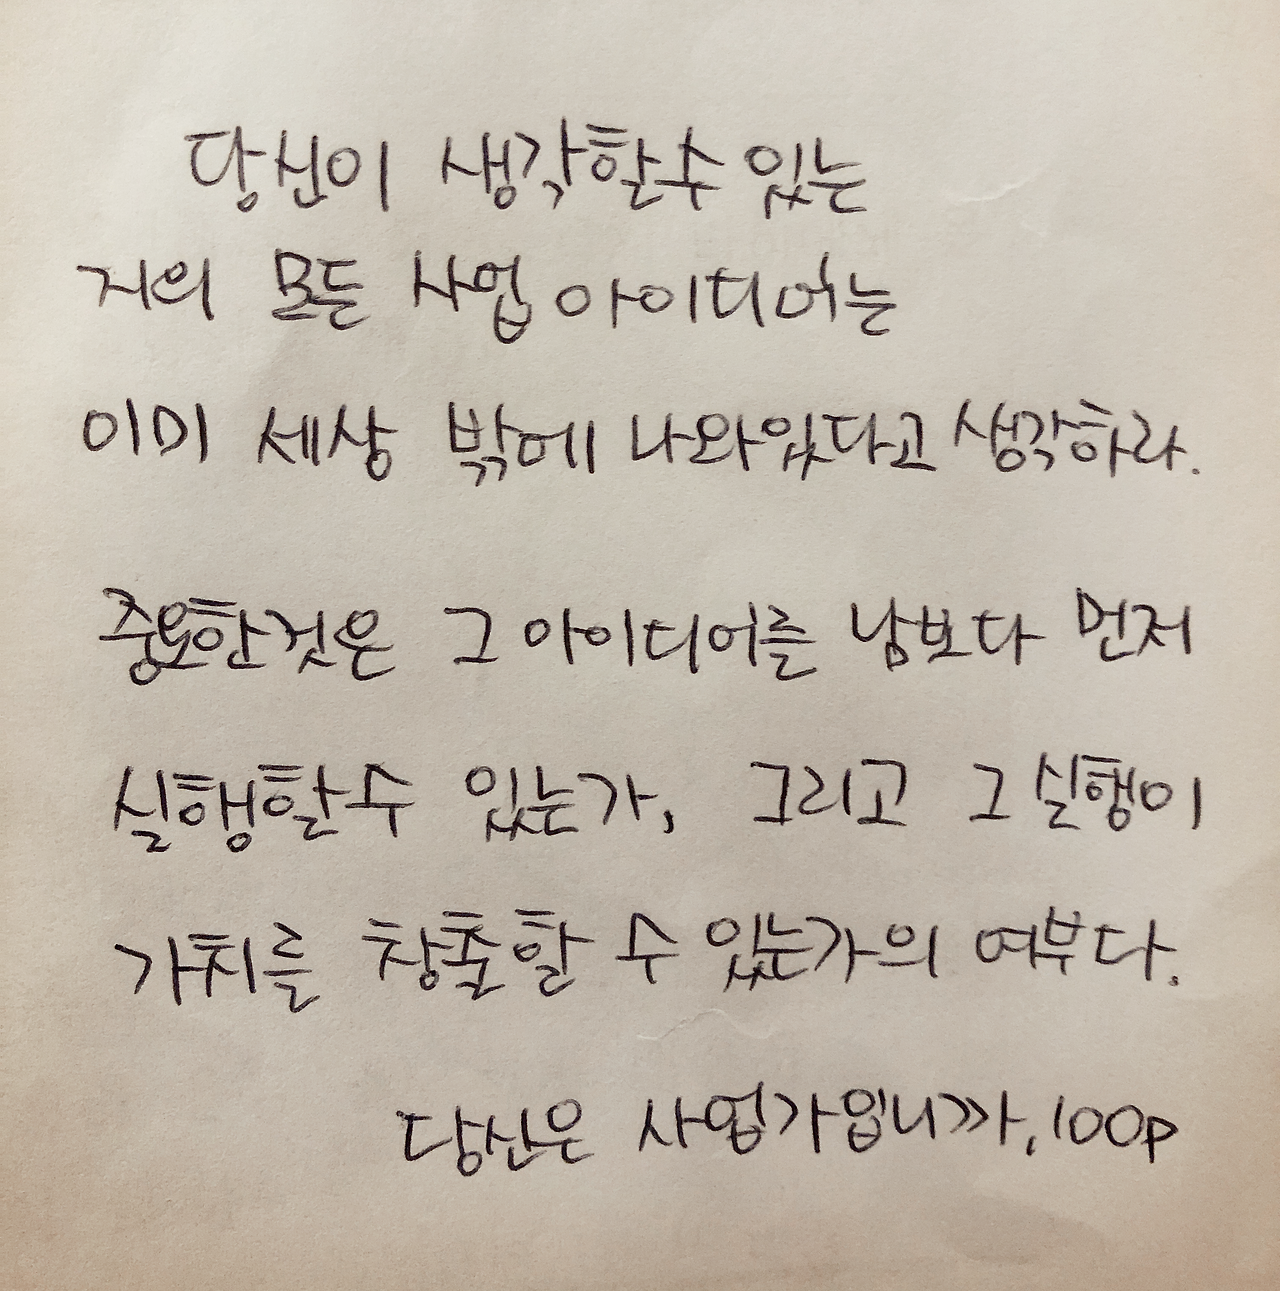 당신이 생각할수 있는
거의 모든 사업 아이디어는
이미 세상 밖에 나와있다고 생각하라.
중요한것은 그 아이디어를 남보다 먼저
실행할수 있는가, 그리고 그 실행이
가치를 창출할 수 있는가의 여부다.
당신은 사업가입니까, 100p